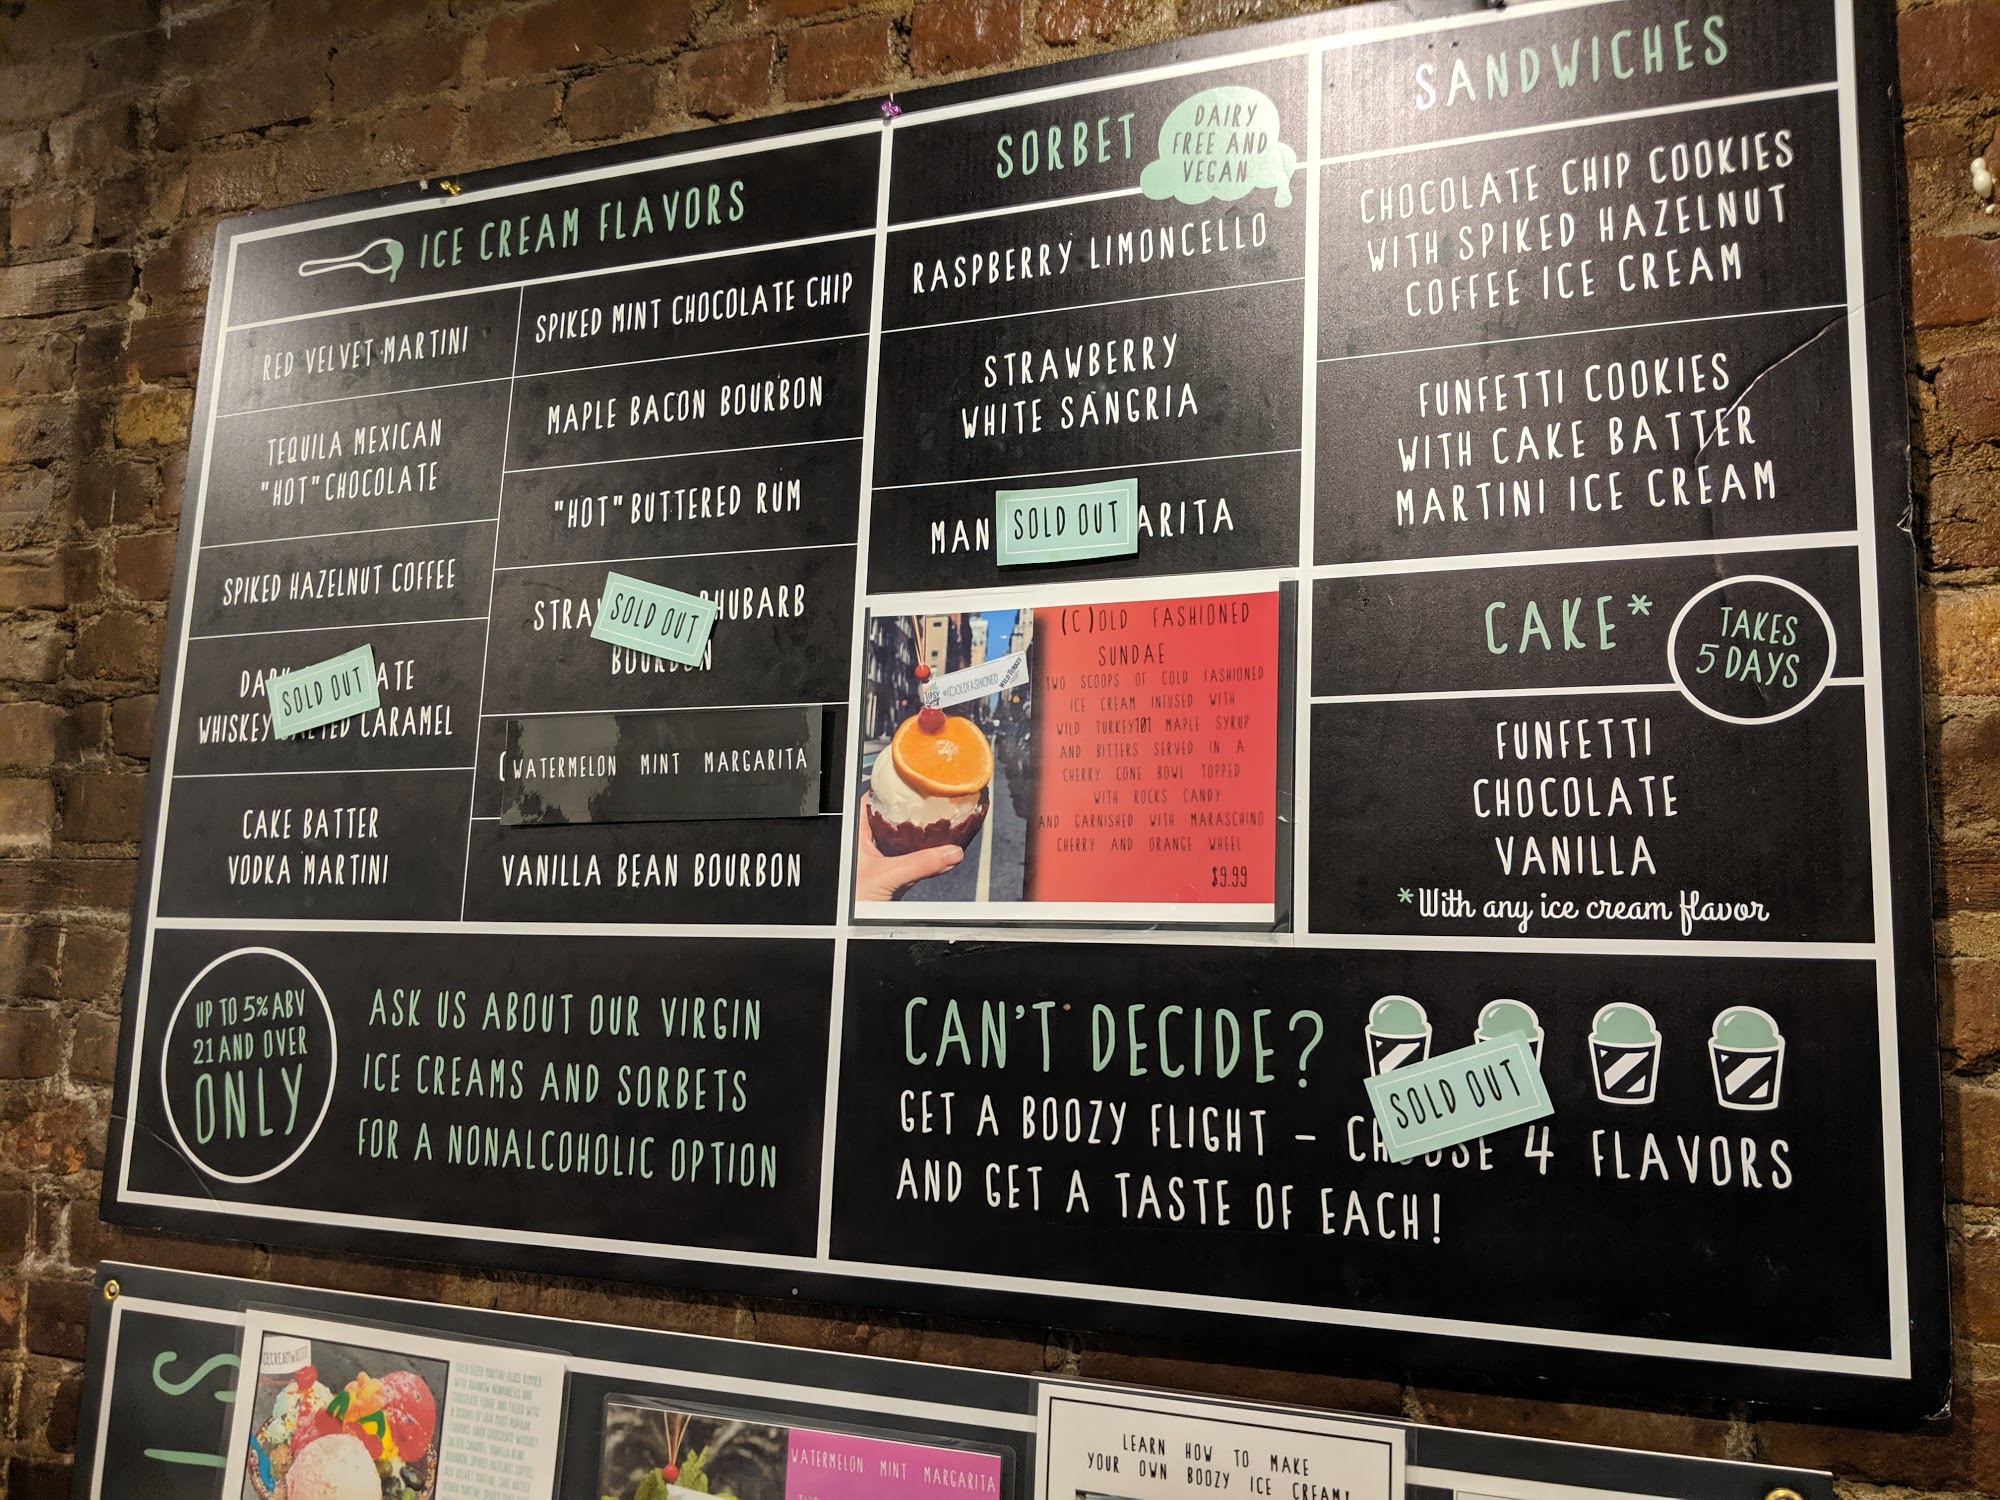 ICE CREAM FLAVORS
RED VELVET MARTINI
TEQUILA MEXICAN
"HOT" CHOCOLATE
SPIKED HAZELNUT COFFEE
SOLD OUT
WHISKEY SALTED CARAMEL
CAKE BATTER
VODKA MARTINI
SPIKED MINT CHOCOLATE CHIP
MAPLE BACON BOURBON
"HOT" BUTTERED RUM
SOLD OUT
BOURBON
WATERMELON MINT MARGARITA
VANILLA BEAN BOURBON
SORBET
DAIRY
FREE AND
VEGAN
RASPBERRY LIMONCELLO
STRAWBERRY
WHITE SANGRIA
MAN SOLD OUT ARITA
(C)OLD FASHIONED
SUNDAE
TWO SCOOPS OF COLD FASHIONED
ICE CREAM INFUSED WITH
WILD TURKEY101 MAPLE SYRUP
AND BITTERS SERVED IN A
CHERRY CONE BOWL TOPPED
WITH ROCKS CANDY
AND GARNISHED WITH MARASCHINO
CHERRY AND ORANGE WHEEL
$9.99
SANDWICHES
CHOCOLATE CHIP COOKIES
WITH SPIKED HAZELNUT
COFFEE ICE CREAM
FUNFETTI COOKIES
WITH CAKE BATTER
MARTINI ICE CREAM
CAKE*
TAKES
5 DAYS
FUNFETTI
CHOCOLATE
VANILLA
*With any ice cream flavor
UP TO 5% ABV
21 AND OVER
ONLY
ASK US ABOUT OUR VIRGIN
ICE CREAMS AND SORBETS
FOR A NONALCOHOLIC OPTION
CAN'T DECIDE?
SOLD OUT
GET A BOOZY FLIGHT - CHOOSE 4 FLAVORS
AND GET A TASTE OF EACH!
WATERMELON MINT MARGARITA
LEARN HOW TO MAKE
YOUR OWN BOOZY ICE CREAM!